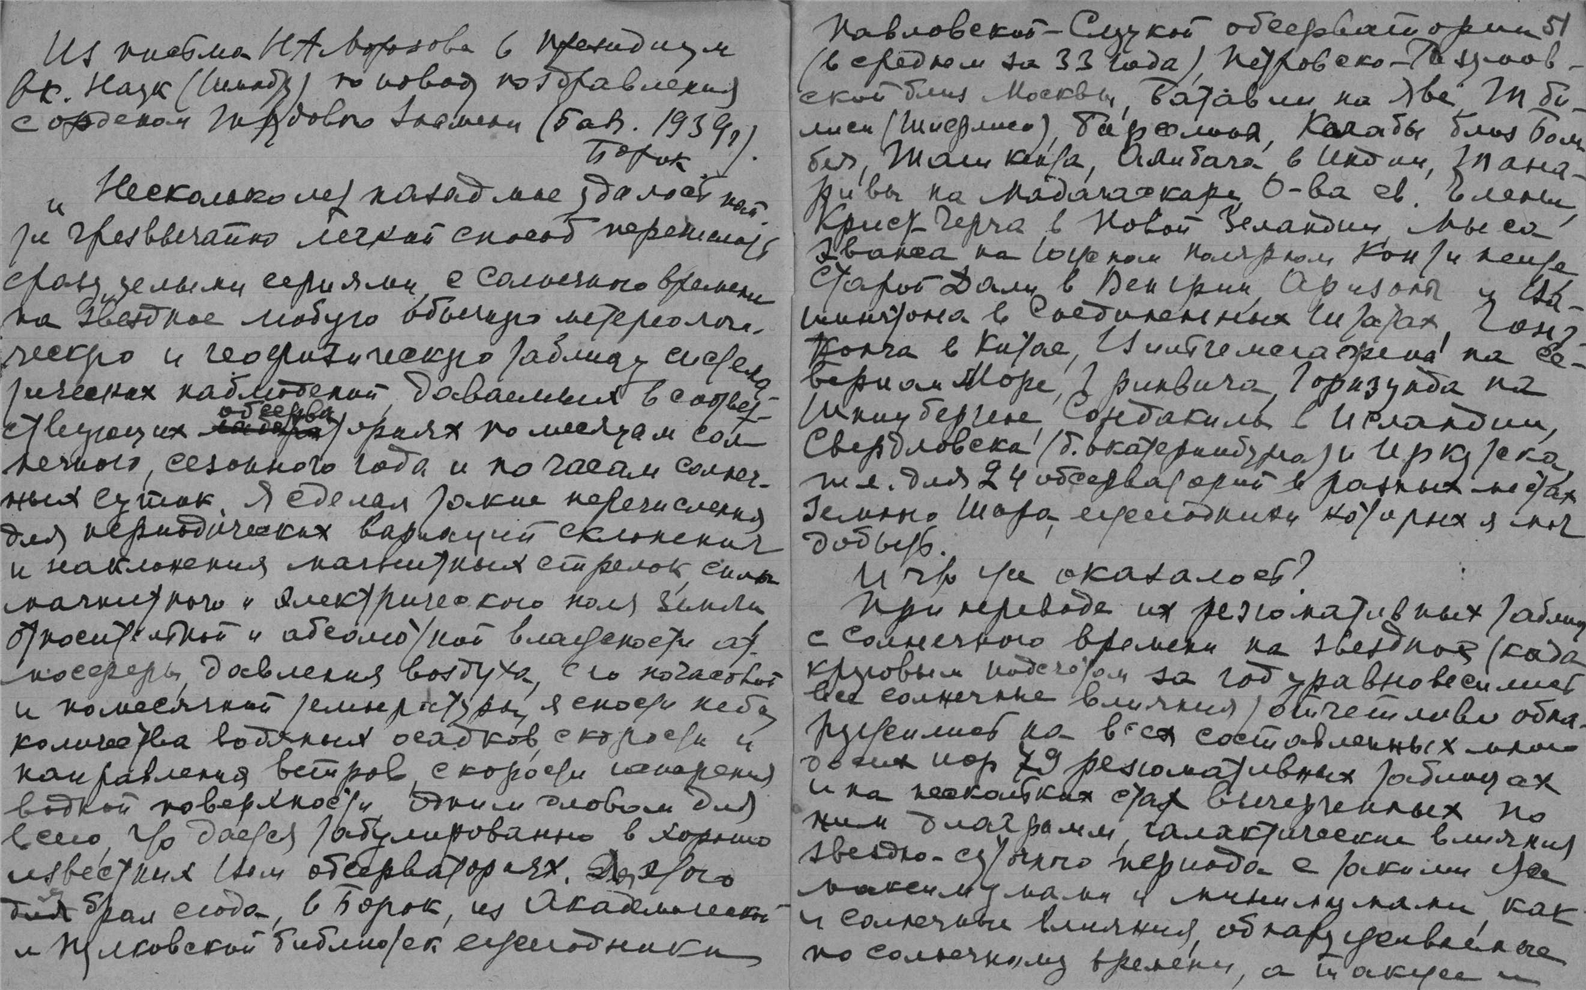 Из письма НА Морозова в президиум
Ак. Наук (Шмидту) по поводу поздравления
с орденом Трудового Знамени (1939 г).
Борок
„Несколько лет назад мне удалось най-
ти чрезвычайно легкий способ перечислять
сразу, целыми сериями, с солнечного времени
на звездное любую обычную метеорологи-
ческую и геофизическую таблицу система-
тических наблюдений, даваемых в соответ-
ствующих обсерваториях по месяцам сол-
нечного, сезонного года и по часам солнеч-
ных суток. Я сделал такие перечисления
для периодических вариаций склонения
и наклонения магнитных стрелок, силы
магнитного и электрического поля Земли
относительной и абсолютной влажности ат-
мосферы, давления воздуха, его почасовой
и помесячной температуры, ясности неба,
количества водяных осадков, скорости и
направления ветров, скорости испарения
водной поверхности одним словом для
всего, что дается табулированно в хорошо
известных обсерваториях. Для этого
брал сюда, в Борок, из Академической
и Пулковской библиотек ежегодники
51
Павловской-Слуцкой обсерватории
(в среднем за 33 года), Петровско-Разумов-
ской близ Москвы, Батавии на Яве, Тби-
лиси (Тифлиса), Барселоны, Колабы близ Бом
бея, Ташкента, Алибага в Индии, Тана-
ривы на Мадагаскаре, О-ва св. Елены,
Крист-Черча в Новой Зеландии, мыса
Эванса на Южном полярном Континенте,
Старой Далы в Венгрии, Аризоны и Ва-
шингтона в Соединенных Штатах, Гонг-
Конга в Китае, Вильгельмсгафена на Се-
верном Море, Гринвича, Горизунда на
Шпицбергене, Соданкиль в Исландии,
Свердловска (б. Екатеринбурга) и Иркутска,
т.е. для 24 обсерваторий в разных местах
Земного Шара, ежегодники которых я мог
добыть.
И что же оказалось?
При переводе их резюмативных таблиц
с солнечного времени на звездное (когда
круговым подсчетом за год уравновесились
все солнечные влияния) отчетливо обна-
ружились на всех составленных мною
до сих пор 79 резюмативных таблицах
и на нескольких стах вычерченных по
ним диаграмм, галактические влияния
звездно-суточного периода с такими же
максимумами и минимумами, как
и солнечные влияния, обнаруживаемые
по солнечному времени, а также и